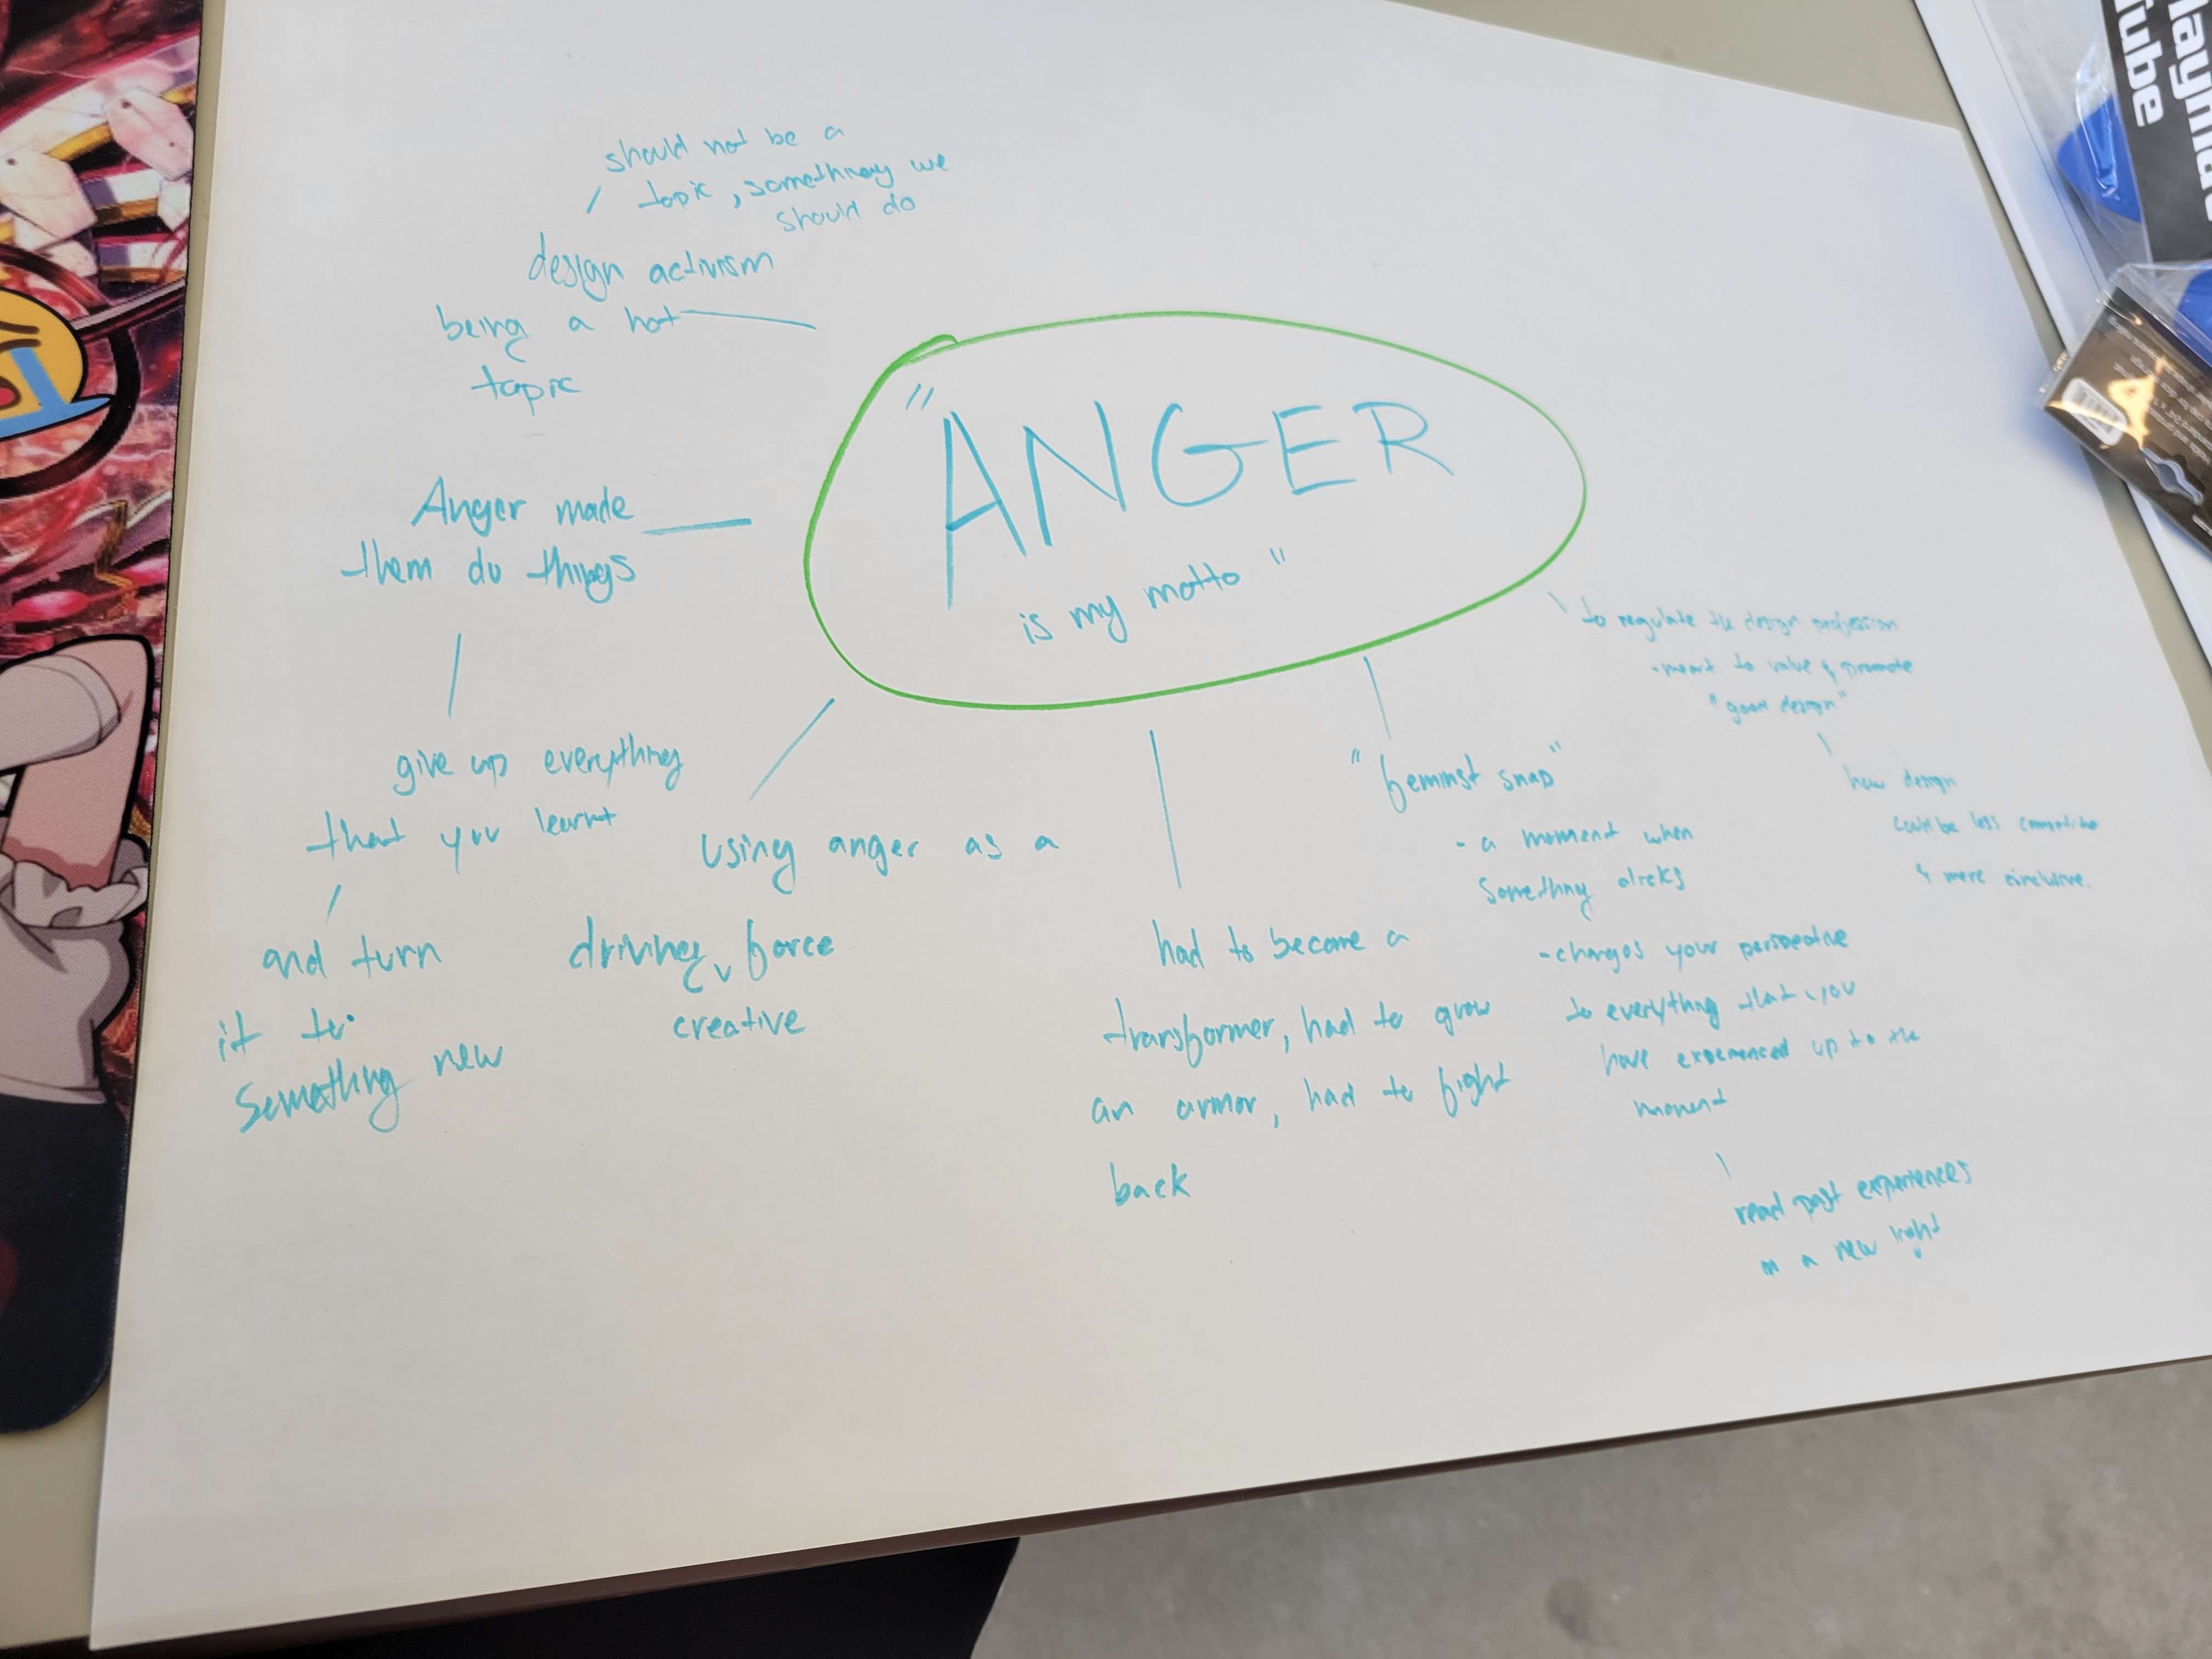 should not be a
topic, something we
should do
design activism
being a hot
topic
"ANGER
is my motto"
Anger made
them do things
give up everything
that you learnt
and turn
it to
Something new
using anger as a
driving force
creative
had to become a
transformer, had to grow
an armor, had to fight
back
"feminst snap"
- a moment when
something clicks
- changes your perspective
to everything that you
have experienced up to the
moment
read past experiences
in a new light
to regulate the design profession
- meant to value & promote
"good design"
how design
could be less competitive
& more inclusive.
laymate
Tube